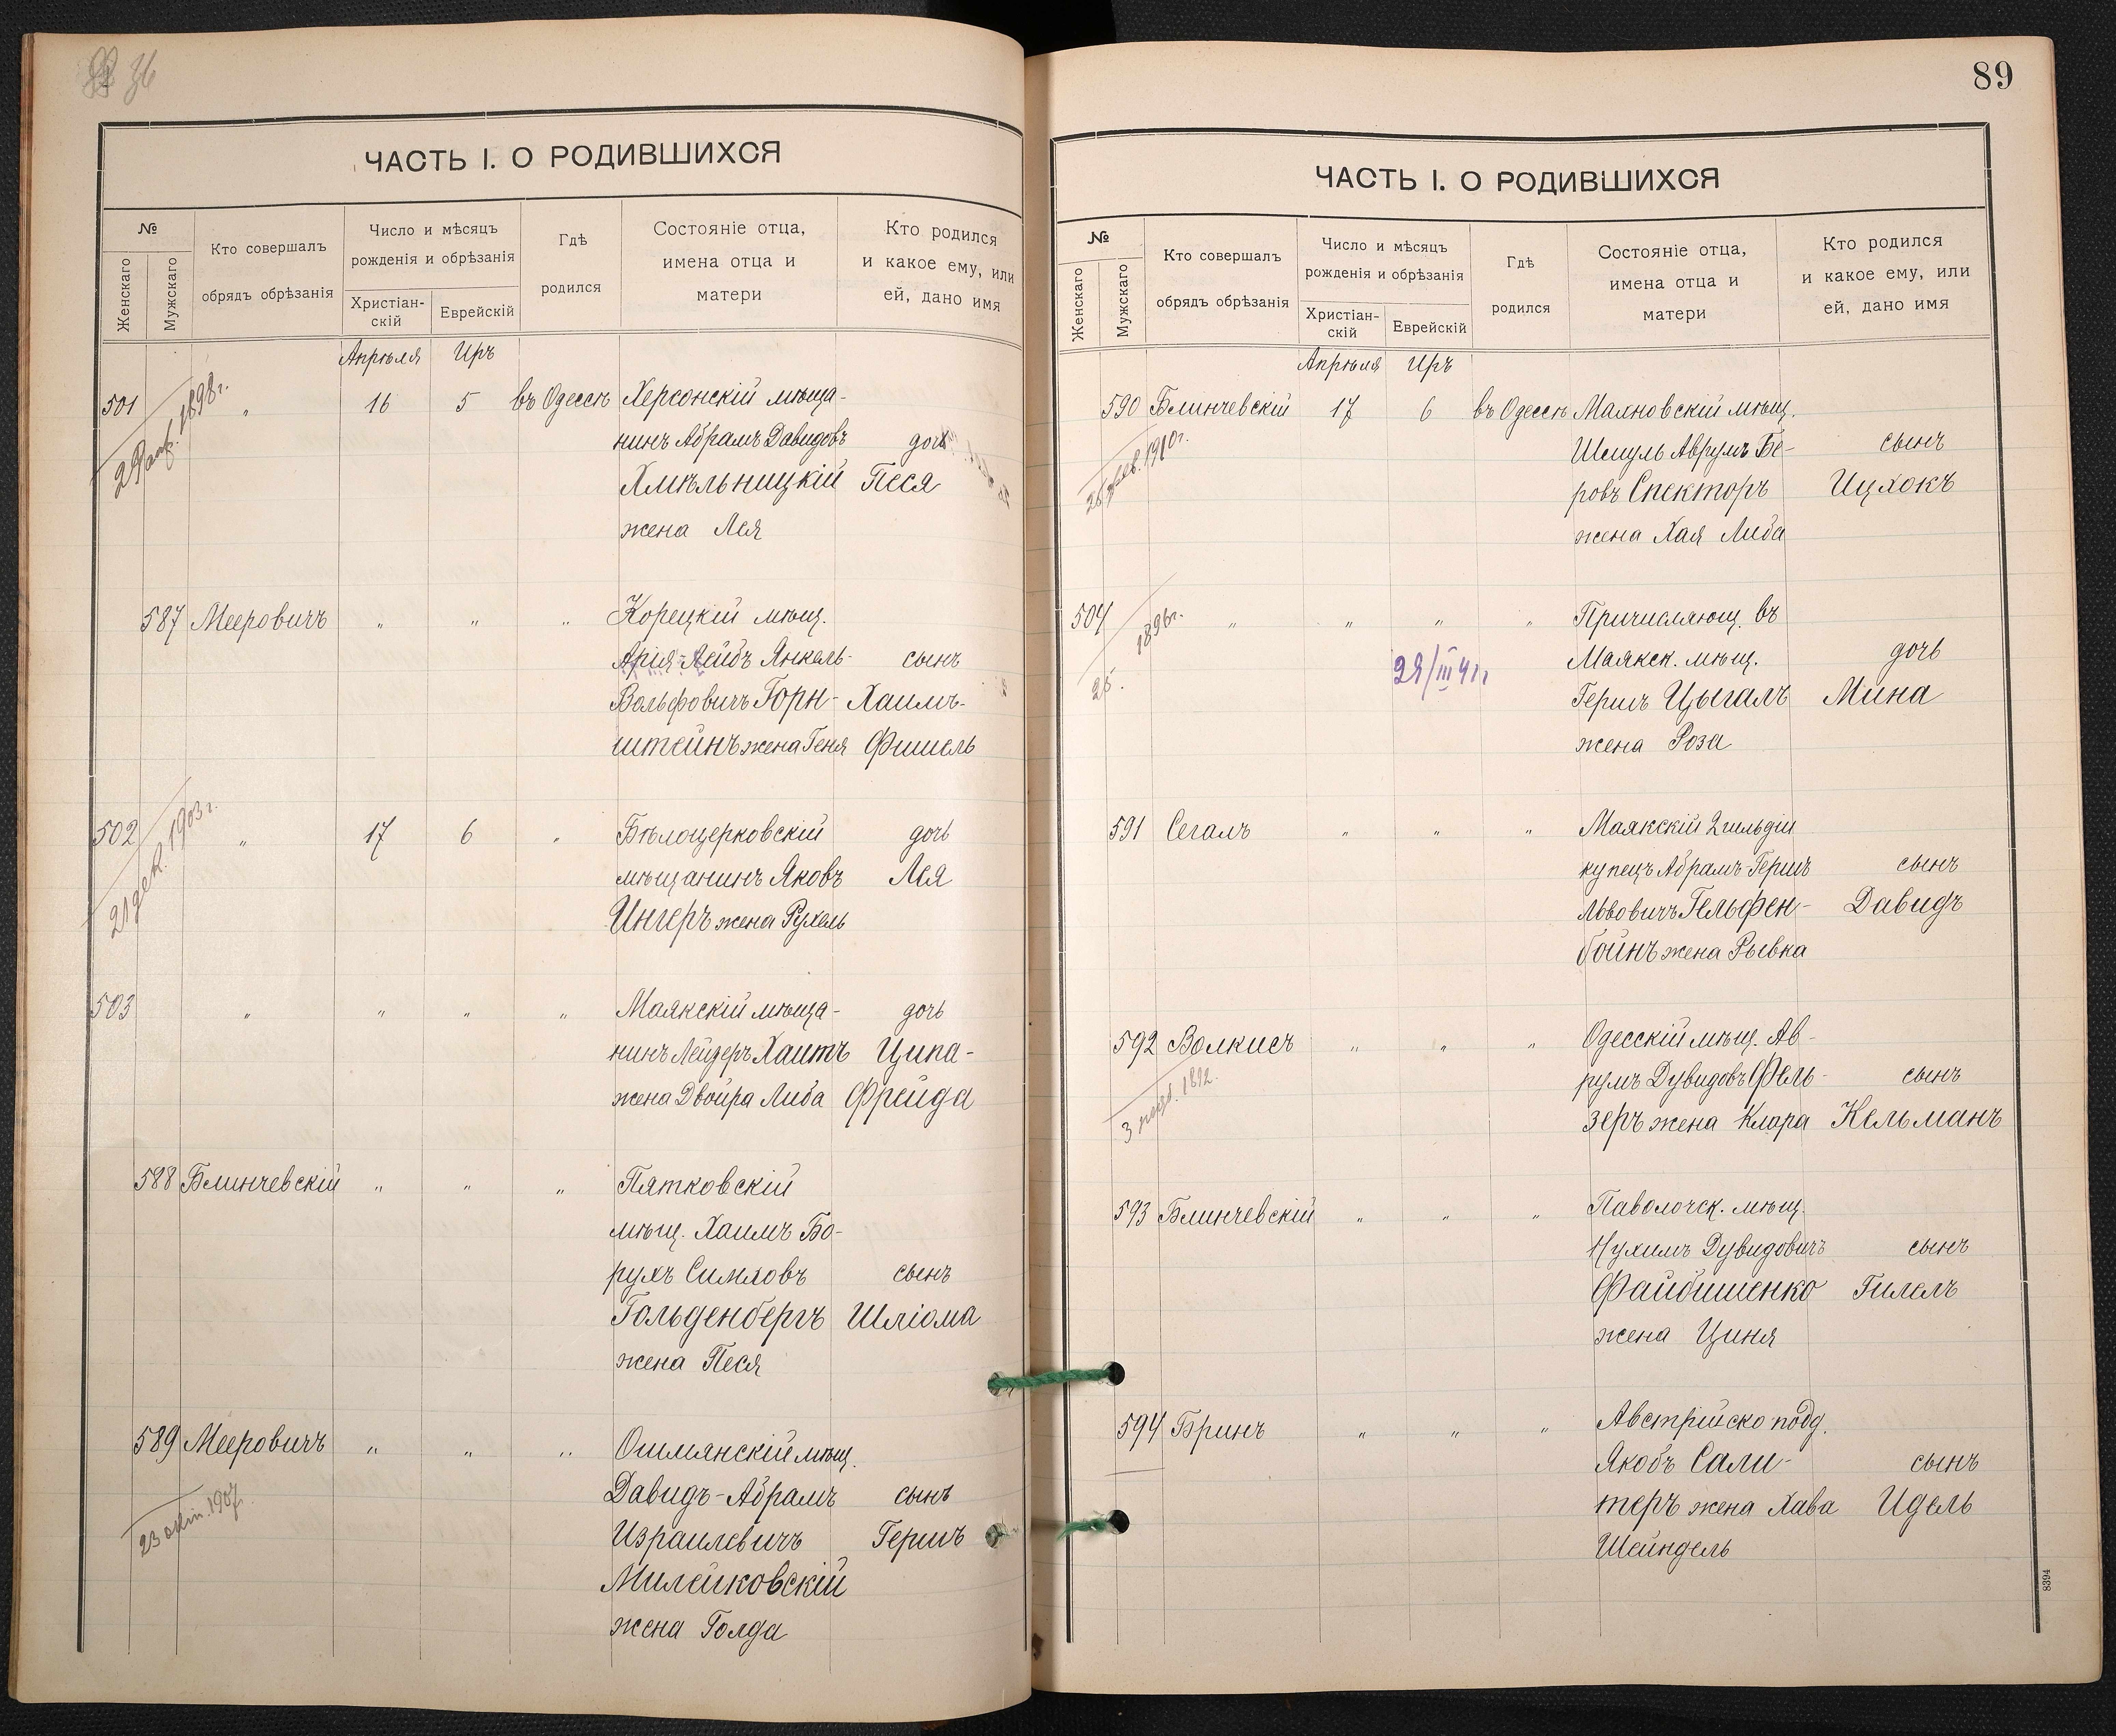 36
ЧАСТЬ I. О РОДИВШИХСЯ
№
Женскаго
Мужскаго
Кто совершалъ
обрядъ обрѣзанія
Число и мѣсяцъ
рожденія и обрѣзанія
Христіан-
скій
Еврейскій
Гдѣ
родился
Состояніе отца,
имена отца и
матери
Кто родился
и какое ему, или
ей, дано имя
Апрѣля Иръ
501 " 16 5 въ Одессѣ Херсонскій мѣща-
1898г.
нинъ Абрамъ Давидовъ дочь
Хмѣльницкій Песя
жена Лея
587 Мееровичъ " " " Корецкій мѣщ.
Арія-Лейбъ Янкель- сынъ
Вольфовичъ Горн- Хаимъ-
штейнъ жена Геня Фишель
502 " 17 6 " Бѣлоцерковскій дочь
21 дек. 1903 г.
мѣщанинъ Яковъ Лея
Ингеръ жена Рухель
503 " " " " Маякскій мѣща- дочь
нинъ Лейзеръ Хаитъ Ципа-
жена Двойра Либа Фрейда
588 Блинчевскій " " " Пятковскій
мѣщ. Хаимъ Бо-
рухъ Симховъ сынъ
Гольденбергъ Шліома
жена Песя
589 Мееровичъ " " " Ошмянскій мѣщ.
23 окт. 1907г.
Давидъ-Абрамъ сынъ
Израилевичъ Гершъ
Милейковскій
жена Голда
89
ЧАСТЬ I. О РОДИВШИХСЯ
№
Женскаго
Мужскаго
Кто совершалъ
обрядъ обрѣзанія
Число и мѣсяцъ
рожденія и обрѣзанія
Христіан-
скій
Еврейскій
Гдѣ
родился
Состояніе отца,
имена отца и
матери
Кто родился
и какое ему, или
ей, дано имя
Апрѣля Иръ
590 Блинчевскій 17 6 въ Одессѣ Маяновскій мѣщ.
1910г.
Шмуль Аврумъ Бе- сынъ
ровъ Спекторъ Ицхокъ
жена Хая Либа
504 " " " " Причисляющ. въ
1896г.
Маякск. мѣщ. дочь
29/III 41г
Гершъ Цыгалъ Мина
жена Роза
591 Сегалъ " " " Маякскій 2 гильдіи
купецъ Абрамъ-Гершъ сынъ
Львовичъ Гельфен- Давидъ
бойнъ жена Рывка
592 Волкисъ " " " Одесскій мѣщ. Ав-
румъ Дувидовъ Фель- сынъ
зеръ жена Клара Кельманъ
593 Блинчевскій " " " Паволочск. мѣщ.
Нухимъ Дувидовичъ сынъ
Файбишенко Гилелъ
жена Циня
594 Бринъ " " " Австрійско подд.
Якобъ Сали- сынъ
теръ жена Хава Идель
Шейндель
8394